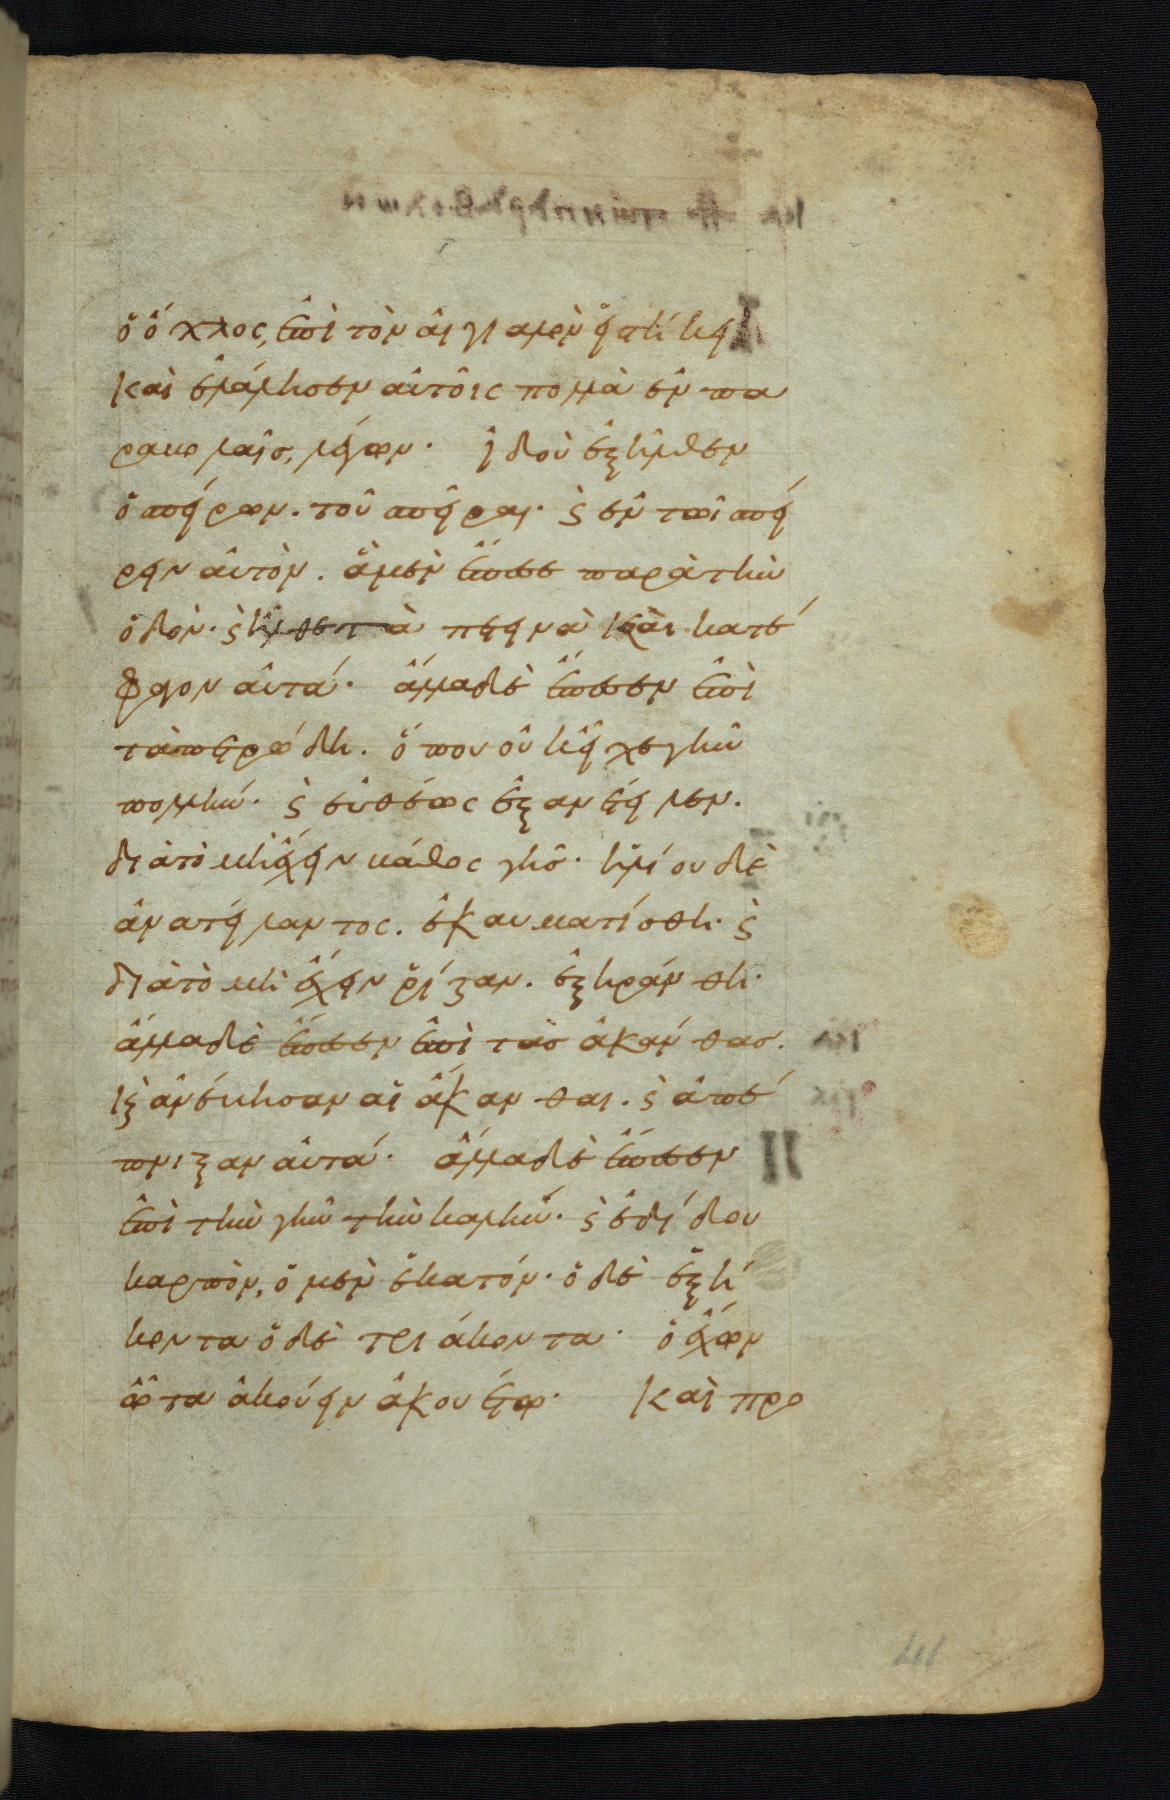 ὁ ὄχλος, ἐπὶ τὸν αἰγιαλὸν εἱστήκει
Καὶ ἐλάλησεν αὐτοῖς πολλὰ ἐν πα
ραβολαῖς, λέγων. ἰδοὺ ἐξῆλθεν
ὁ σπείρων. τοῦ σπεῖραι. ϛ ἐν τῶι σπεί
ρειν αὐτὸν. ἃ μὲν ἔπεσε παρὰ τὴν
ὁδὸν. ϛ ἦλθε τὰ πετεινὰ καὶ κατέ
φαγον αὐτά. ἄλλα δὲ ἔπεσεν ἐπὶ
τὰ πετρώδη. ὅπου οὐκ εἶχε γῆν
πολλήν. ϛ εὐθέως ἐξανέτειλεν.
διὰ τὸ μὴ ἔχειν βάθος γῆς. ἡλίου δὲ
ἀνατείλαντος. ἐκαυματίσθη. ϛ
διὰ τὸ μὴ ἔχειν ῥίζαν. ἐξηράνθη.
ἄλλα δὲ ἔπεσεν ἐπὶ τὰς ἀκάνθας.
κϛ ἀνέβησαν αἱ ἄκανθαι. ϛ ἀπέ
πνιξαν αὐτά. ἄλλα δὲ ἔπεσεν
ἐπὶ τὴν γῆν τὴν καλήν. ϛ ἐδίδου
καρπὸν, ὃ μὲν ἑκατόν. ὃ δὲ ἑξή
κοντα ὃ δὲ τριάκοντα. ὁ ἔχων
ὦτα ἀκούειν ἀκουέτω. Καὶ προ